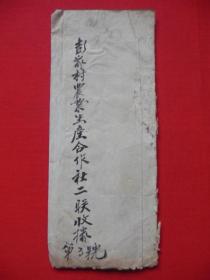 彭家村農業生產合作社二联收據
第3號